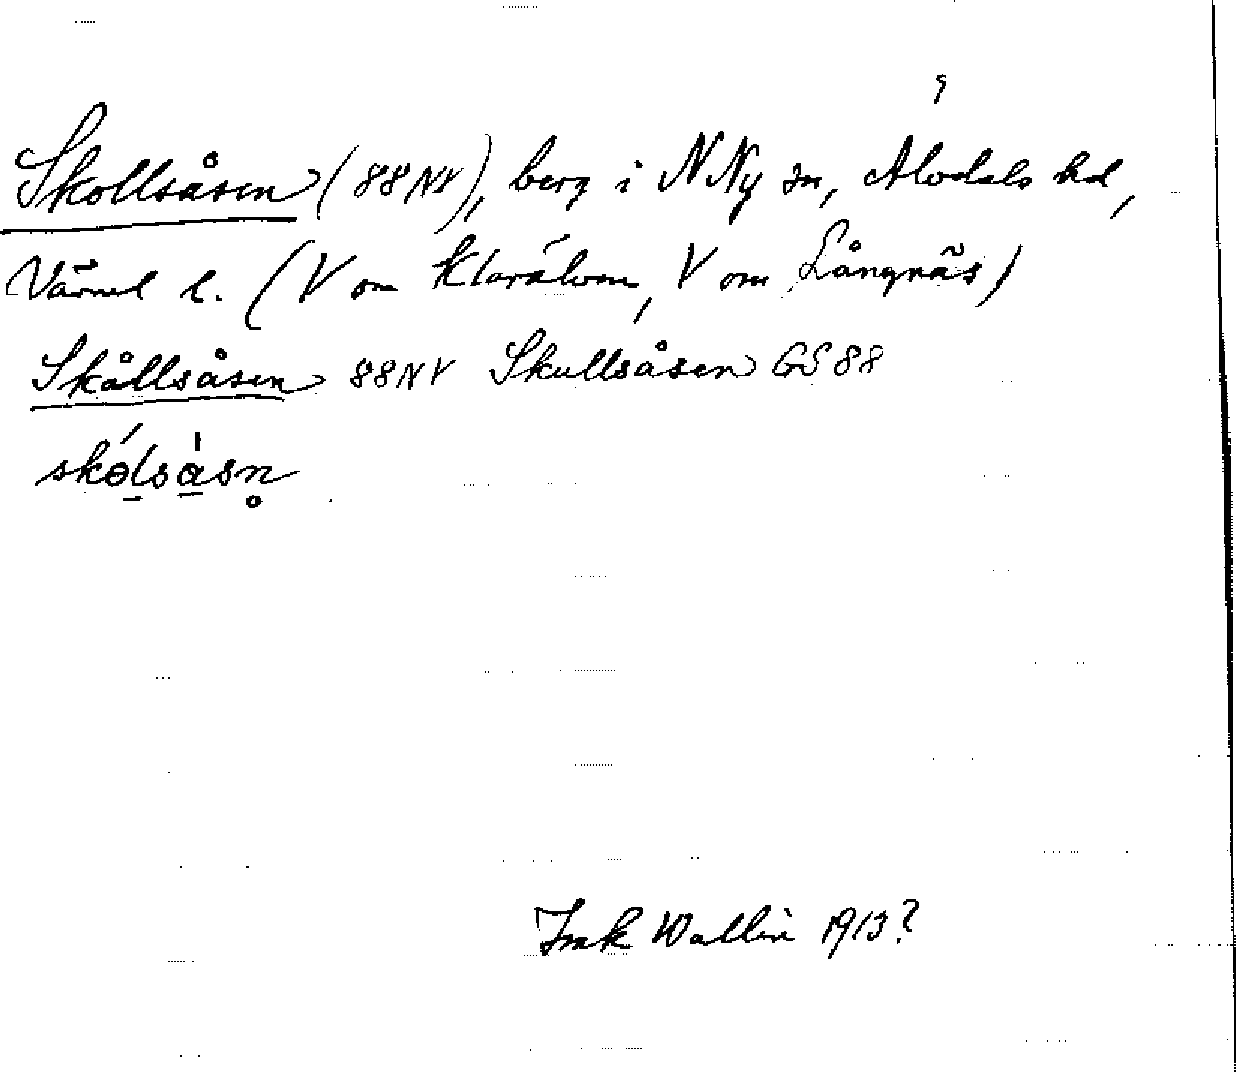 Skollsåsen (88NV), berg i N Ny sn, Älvdals hd,
Värml l. (V om Klarälven, V om Långnäs)
Skållsåsen 88NV Skullsåsen GS 88
skólsåsn
Wallin 1913?